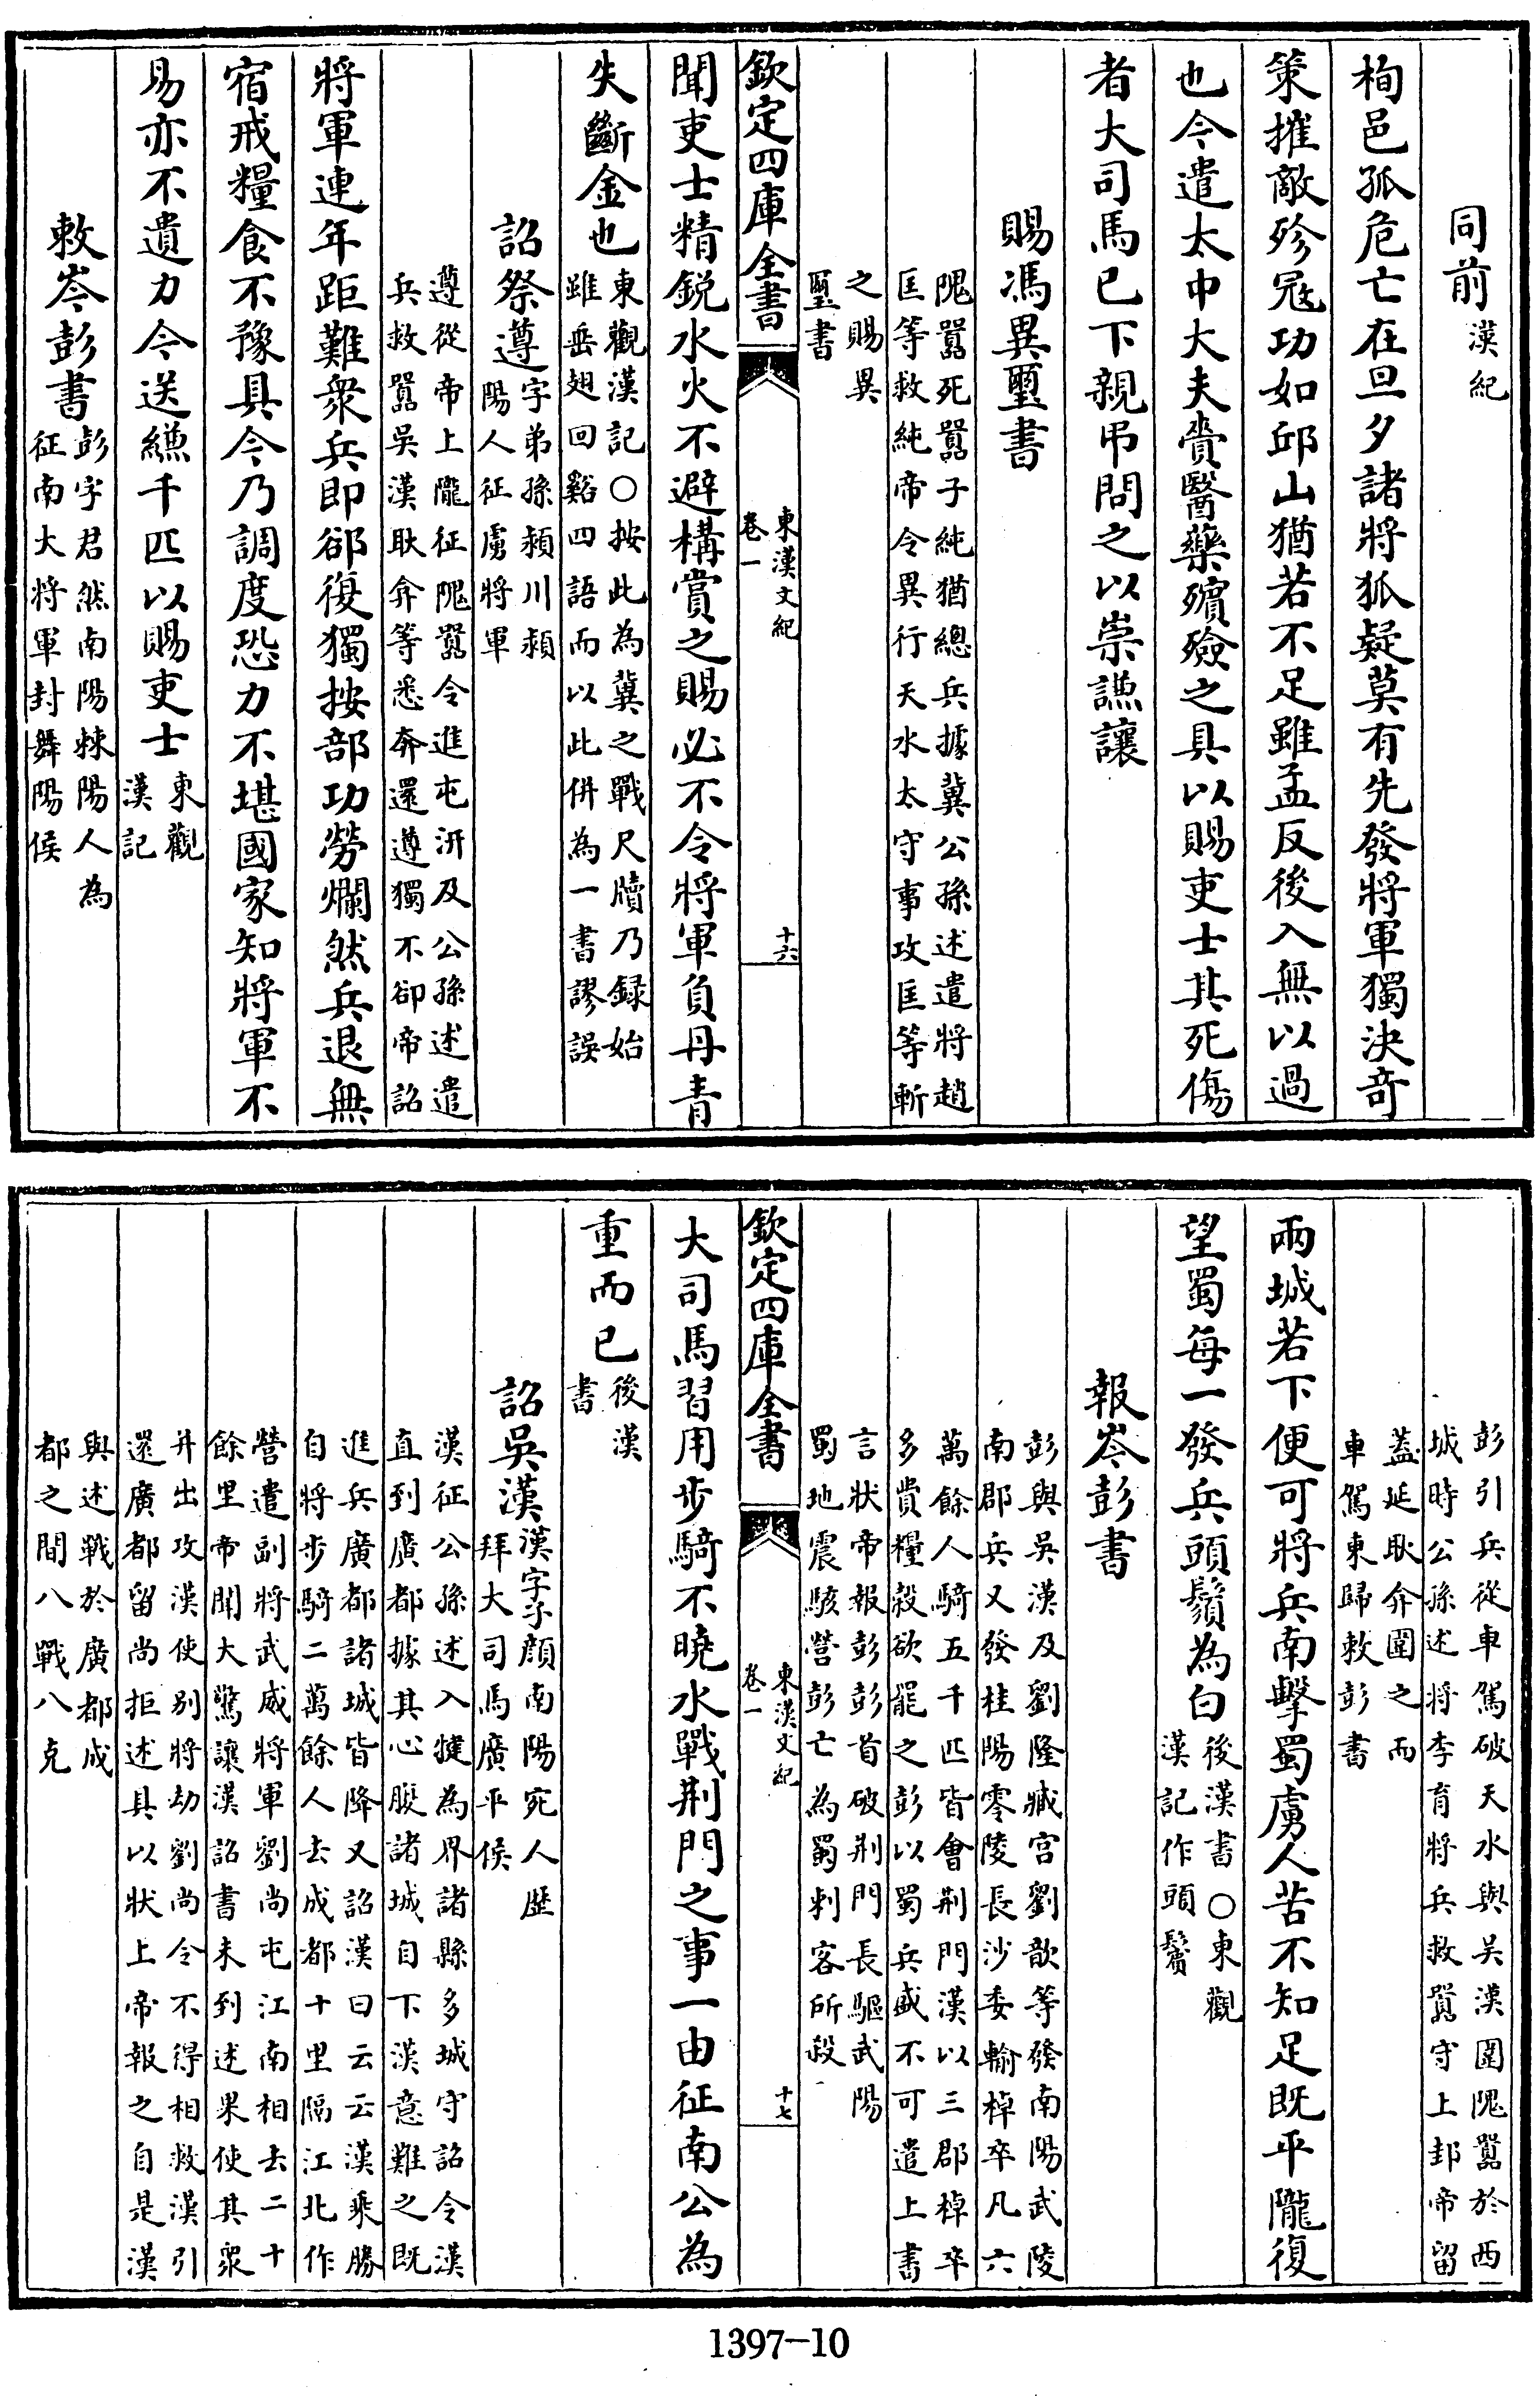 同前漢紀
栒邑孤危亡在旦夕諸將狐疑莫有先發將軍獨決竒
策摧敵殄冦功如邱山猶若不足雖孟反後入無以過
也今遣太中大夫賷醫藥殯殮之具以賜吏士其死傷
者大司馬已下親弔問之以崇謙讓
賜馮異璽書
隗囂死囂子純猶總兵據冀公孫述遣將趙
匡等救純帝令異行天水太守事攻匡等斬
之賜異
璽書
欽定四庫全書
東漢文紀
卷一
十六
聞吏士精鋭水火不避構賞之賜必不令將軍負丹青
失斷金也
東觀漢記○按此為冀之戰尺牘乃録始
雖垂翅回谿四語而以此併為一書謬誤
詔祭遵
字弟孫潁川潁
陽人征虜將軍
遵從帝上隴征隗囂令進屯汧及公孫述遣
兵救囂吳漢耿弇等悉奔還遵獨不卻帝詔
將軍連年距難衆兵即郤復獨按部功勞爛然兵退無
宿戒糧食不豫具今乃調度恐力不堪國家知將軍不
易亦不遺力今送縑千匹以賜吏士
東觀
漢記
敕岑彭書
彭字君然南陽棘陽人為
征南大將軍封舞陽侯
彭引兵從車駕破天水與吳漢圍隗囂於西
城時公孫述將李育將兵救囂守上邽帝留
蓋延耿弇圍之而
車駕東歸敕彭書
兩城若下便可將兵南擊蜀虜人苦不知足既平隴復
望蜀每一發兵頭鬚為白
後漢書○東觀
漢記作頭鬢
報岑彭書
彭與吳漢及劉隆臧宫劉歆等發南陽武陵
南郡兵又發桂陽零陵長沙委輸棹卒凡六
萬餘人騎五千匹皆會荆門漢以三郡棹卒
多費糧穀欲罷之彭以蜀兵盛不可遣上書
言狀帝報彭彭首破荆門長驅武陽
蜀地震駭營彭亡為蜀刺客所殺
欽定四庫全書
東漢文紀
卷一
十七
大司馬習用步騎不曉水戰荆門之事一由征南公為
重而已
後漢
書
詔吳漢
漢字子顔南陽宛人歴
拜大司馬廣平侯
漢征公孫述入犍為界諸縣多城守詔令漢
直到廣都據其心腹諸城自下漢意難之既
進兵廣都諸城皆降又詔漢曰云云漢乘勝
自將步騎二萬餘人去成都十里隔江北作
營遣副將武威將軍劉尚屯江南相去二十
餘里帝聞大驚讓漢詔書未到述果使其衆
并出攻漢使别將劫劉尚令不得相救漢引
還廣都留尚拒述具以狀上帝報之自是漢
與述戰於廣都成
都之間八戰八克
1397-10